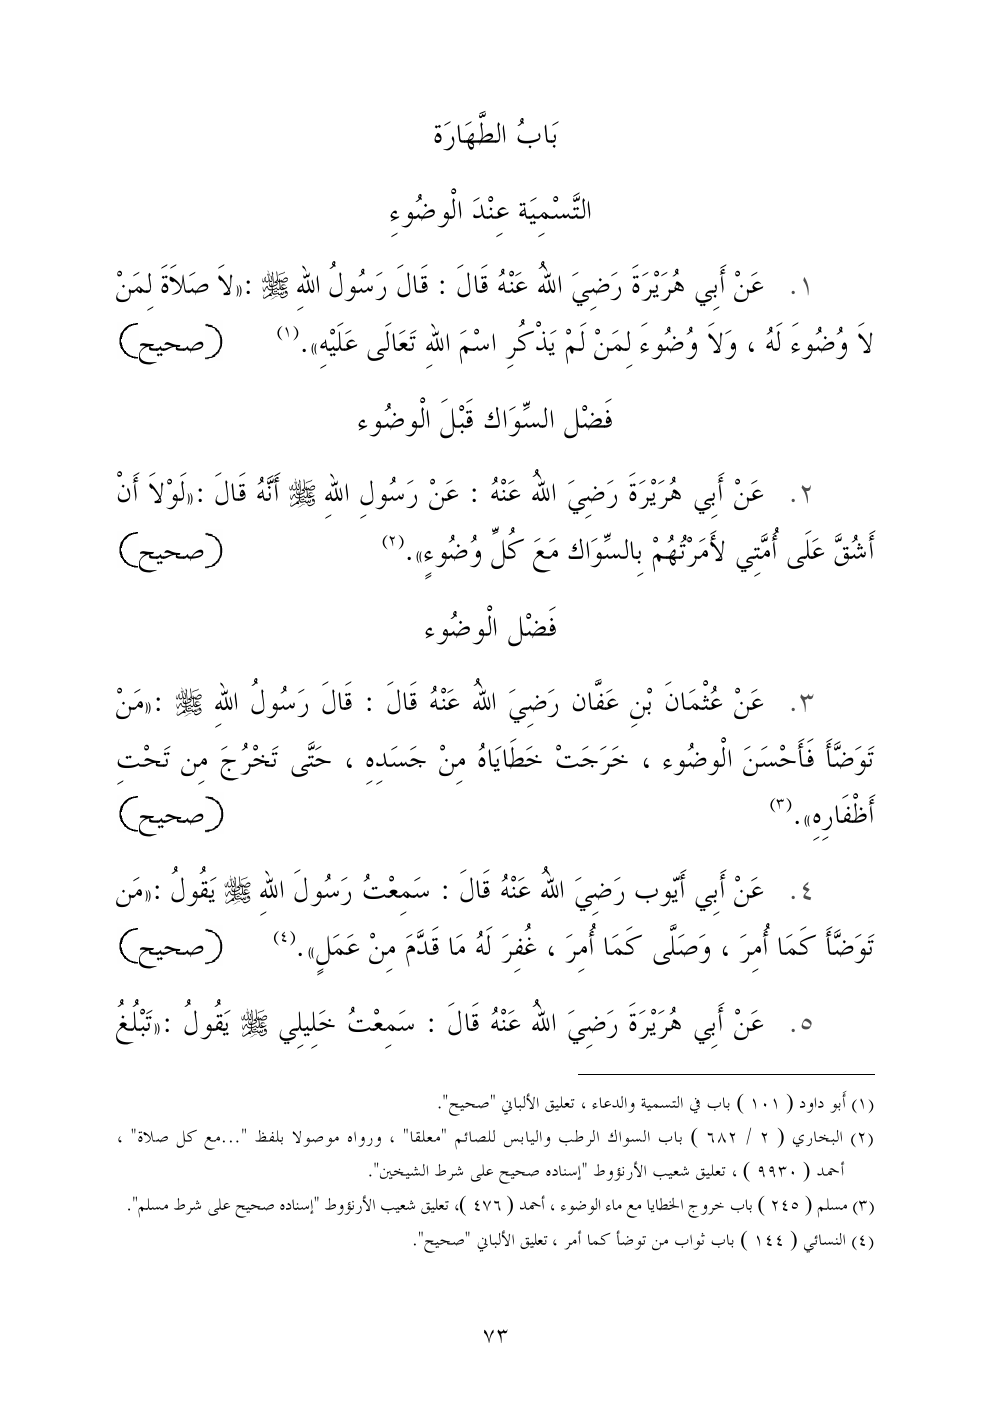 بَابُ الطَّهَارَة
التَّسْمِيَة عِنْدَ الْوضُوءِ
١. عَنْ أَبِي هُرَيْرَةَ رَضِيَ اللهُ عَنْهُ قَالَ : قَالَ رَسُولُ اللهِ ﷺ :«لاَ صَلاَةَ لِمَنْ
لاَ وُضُوءَ لَهُ ، وَلاَ وُضُوءَ لِمَنْ لَمْ يَذْكُرِ اسْمَ اللهِ تَعَالَى عَلَيْهِ».(١) (صحيح)
فَضْل السِّوَاك قَبْلَ الْوضُوء
٢. عَنْ أَبِي هُرَيْرَةَ رَضِيَ اللهُ عَنْهُ : عَنْ رَسُولِ اللهِ ﷺ أَنَّهُ قَالَ :«لَوْلاَ أَنْ
أَشُقَّ عَلَى أُمَّتِي لأَمَرْتُهُمْ بِالسِّوَاك مَعَ كُلِّ وُضُوءٍ».(٢) (صحيح)
فَضْل الْوضُوء
٣. عَنْ عُثْمَانَ بْنِ عَفَّان رَضِيَ اللهُ عَنْهُ قَالَ : قَالَ رَسُولُ اللهِ ﷺ :«مَنْ
تَوَضَّأَ فَأَحْسَنَ الْوضُوء ، خَرَجَتْ خَطَايَاهُ مِنْ جَسَدِهِ ، حَتَّى تَخْرُجَ مِن تَحْتِ
أَظْفَارِهِ».(٣) (صحيح)
٤. عَنْ أَبِي أَيّوب رَضِيَ اللهُ عَنْهُ قَالَ : سَمِعْتُ رَسُولَ اللهِ ﷺ يَقُولُ :«مَن
تَوَضَّأَ كَمَا أُمِرَ ، وَصَلَّى كَمَا أُمِرَ ، غُفِرَ لَهُ مَا قَدَّمَ مِنْ عَمَلٍ».(٤) (صحيح)
٥. عَنْ أَبِي هُرَيْرَةَ رَضِيَ اللهُ عَنْهُ قَالَ : سَمِعْتُ خَلِيلِي ﷺ يَقُولُ :«تَبْلُغُ
(١) أَبو داود ( ١٠١ ) باب في التسمية والدعاء ، تعليق الألباني "صحيح".
(٢) البخاري ( ٢ / ٦٨٢ ) باب السواك الرطب واليابس للصائم "معلقا" ، ورواه موصولا بلفظ "...مع كل صلاة" ،
أحمد ( ٩٩٣٠ ) ، تعليق شعيب الأرنؤوط "إسناده صحيح على شرط الشيخين".
(٣) مسلم ( ٢٤٥ ) باب خروج الخطايا مع ماء الوضوء ، أحمد ( ٤٧٦ )، تعليق شعيب الأرنؤوط "إسناده صحيح على شرط مسلم".
(٤) النسائي ( ١٤٤ ) باب ثواب من توضأ كما أمر ، تعليق الألباني "صحيح".
٧٣